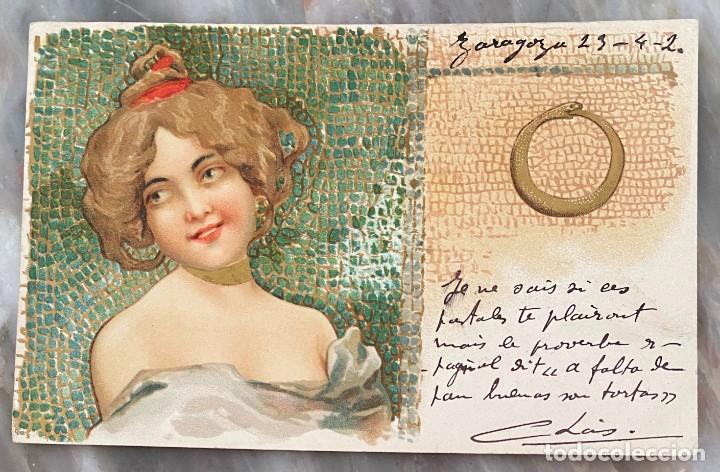 Zaragoza 23-4-2.
Je ne sais si ces
postales te plairont
mais le proverbe es-
-pagnol dit « a falta de
pan buenas son tortas »
Luis.
todocoleccion